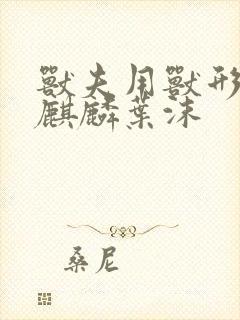 獸夫用獸形
麒麟葉沫
桑尼